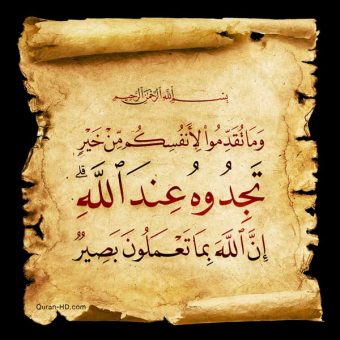 بِسْمِ ٱللَّهِ ٱلرَّحْمَٰنِ ٱلرَّحِيمِ
وَمَا تُقَدِّمُوا۟ لِأَنفُسِكُم مِّنْ خَيْرٍ
تَجِدُوهُ عِندَ ٱللَّهِ ۗ
إِنَّ ٱللَّهَ بِمَا تَعْمَلُونَ بَصِيرٌ
Quran-HD.com